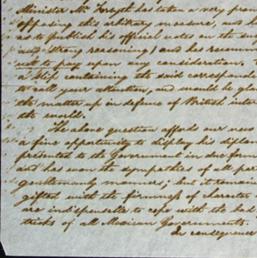 Minister Mr. Forsyth has taken a very prom
opposing this arbitrary measure, and h
as to publish his official notes on the su
ing strong reasoning) and has recomm
not to pay upon any consideration.
a slip containing the said corresponde
to call your attention, and would be gla
the matter up in defence of British inter
the world.
The above question affords our new
a fine opportunity to display his diplom
presented to the Government in due form
and has won the sympathies of all par
gentlemanly manners; but it remains
gifted with the firmness of character
are indispensable to cope with the bad
tricks of all Mexican Governments.
In consequence